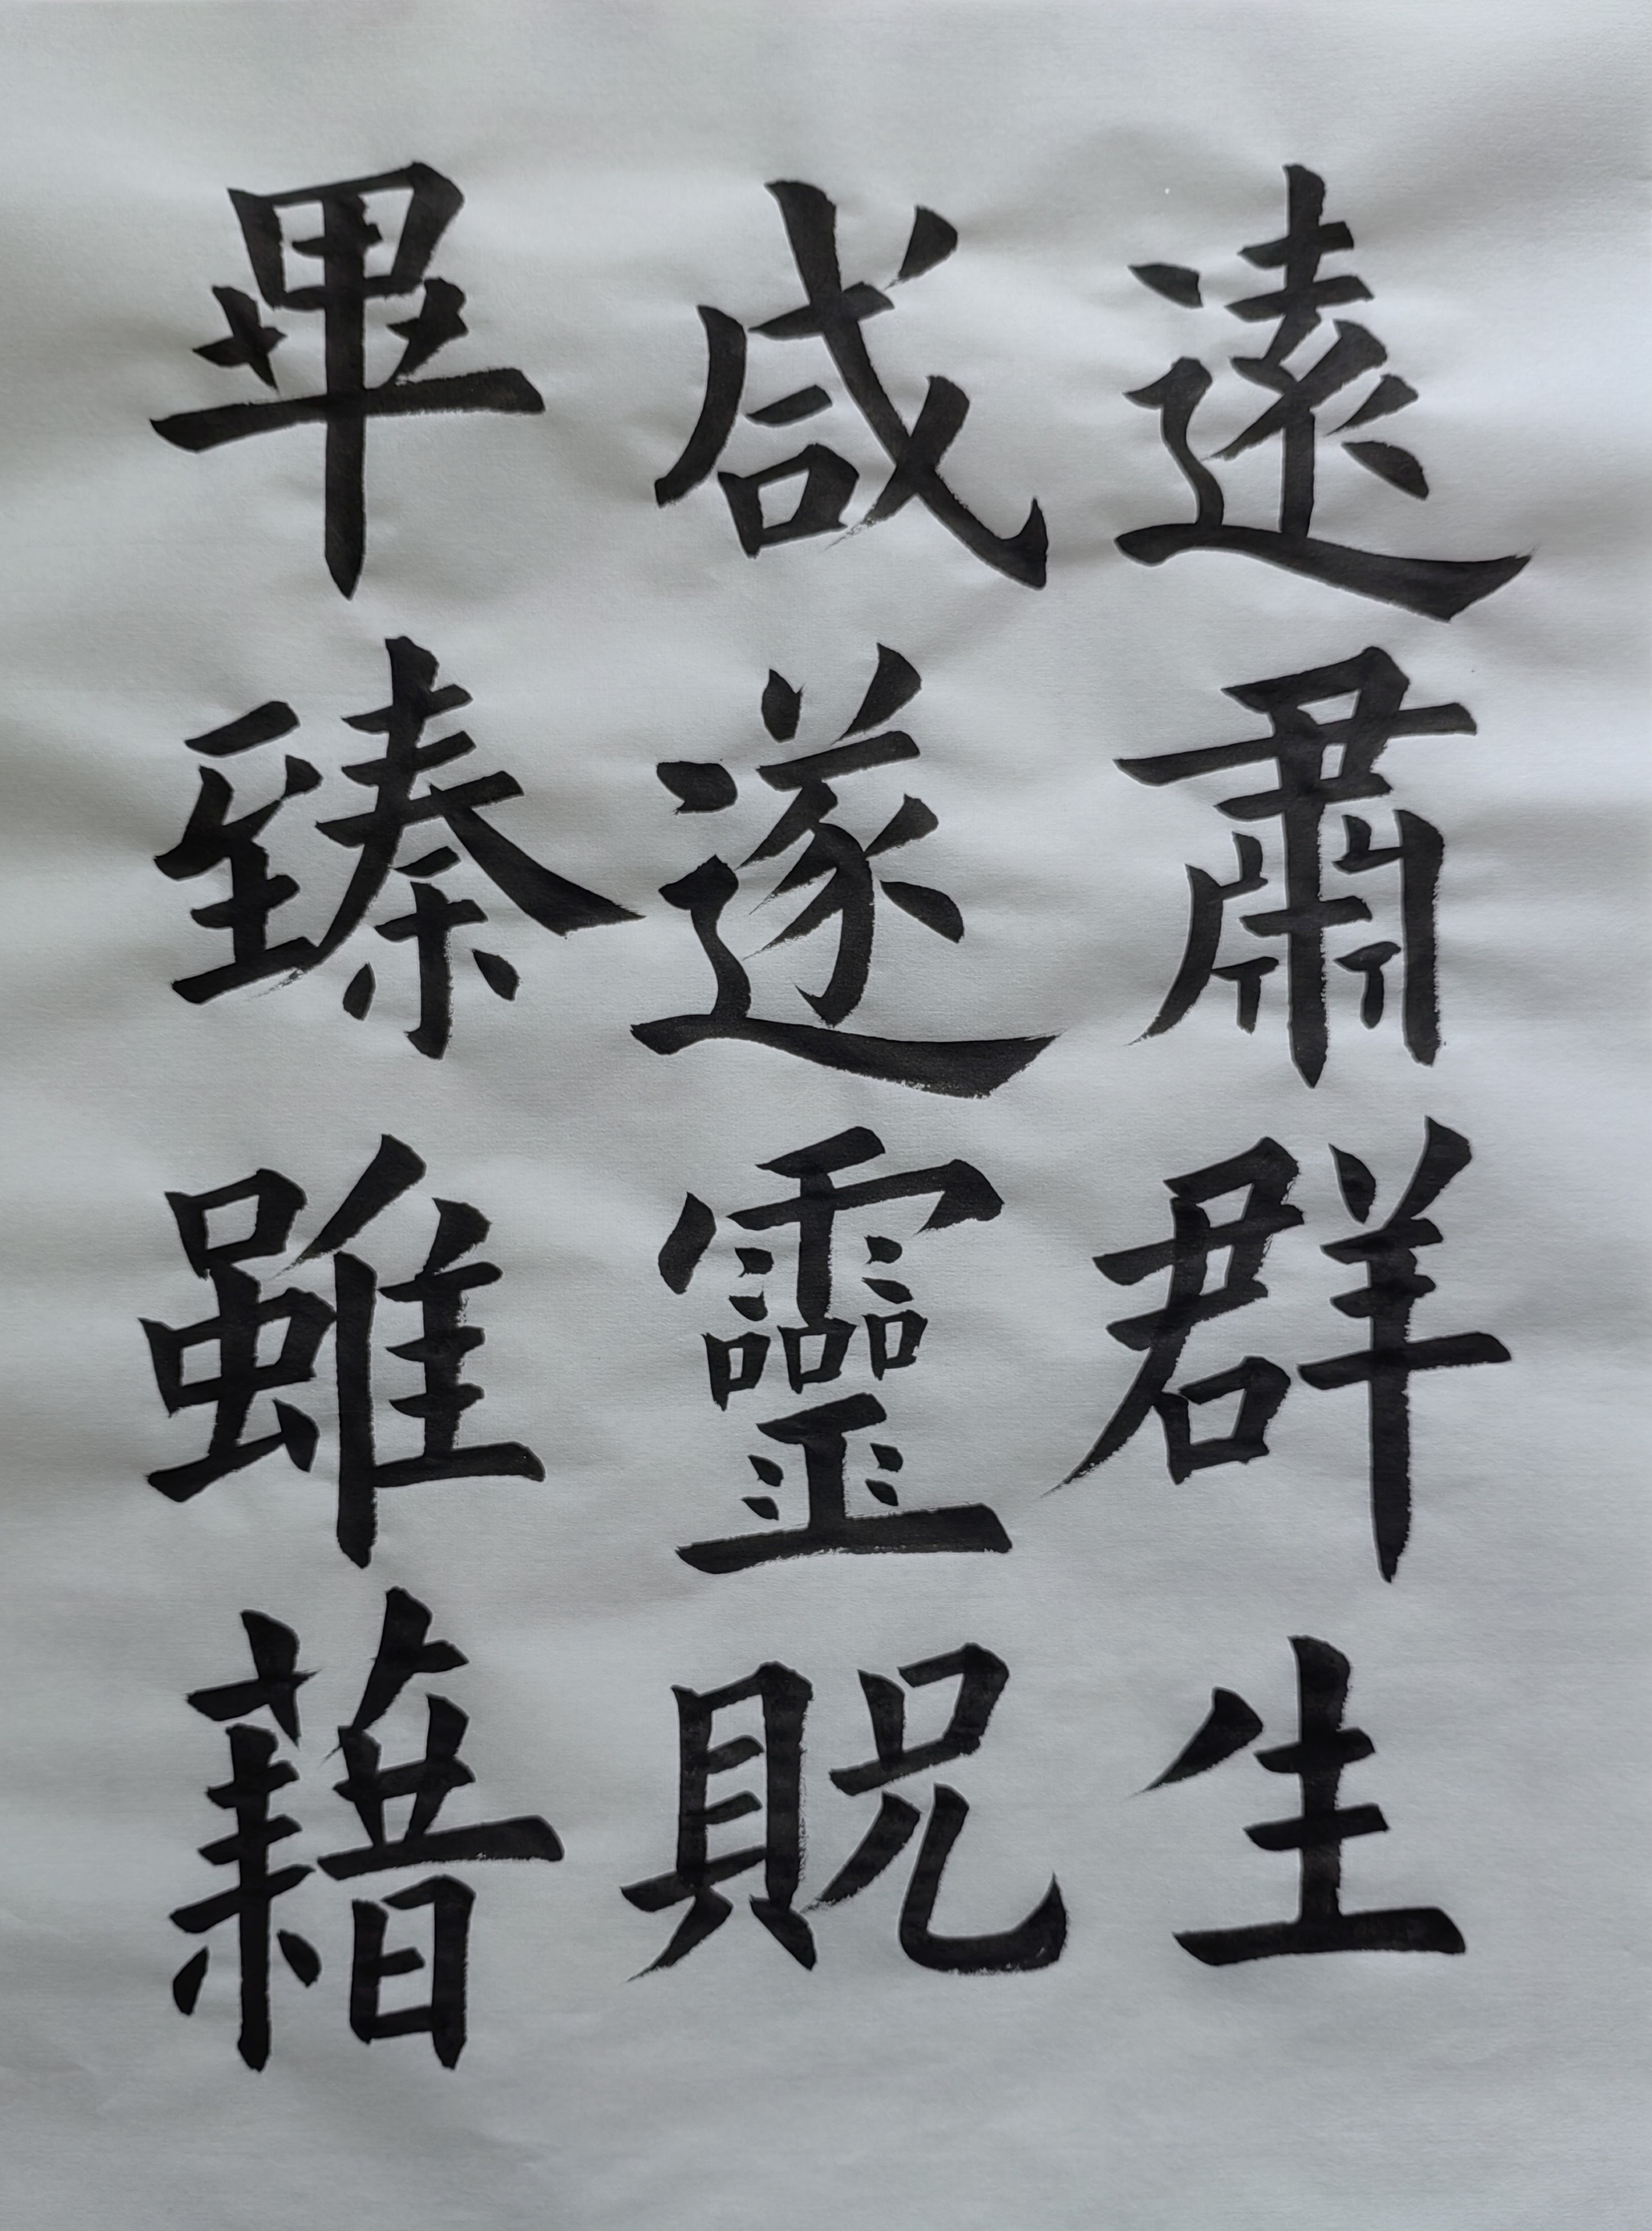 遠肅群生
咸遂靈貺
畢臻雖藉